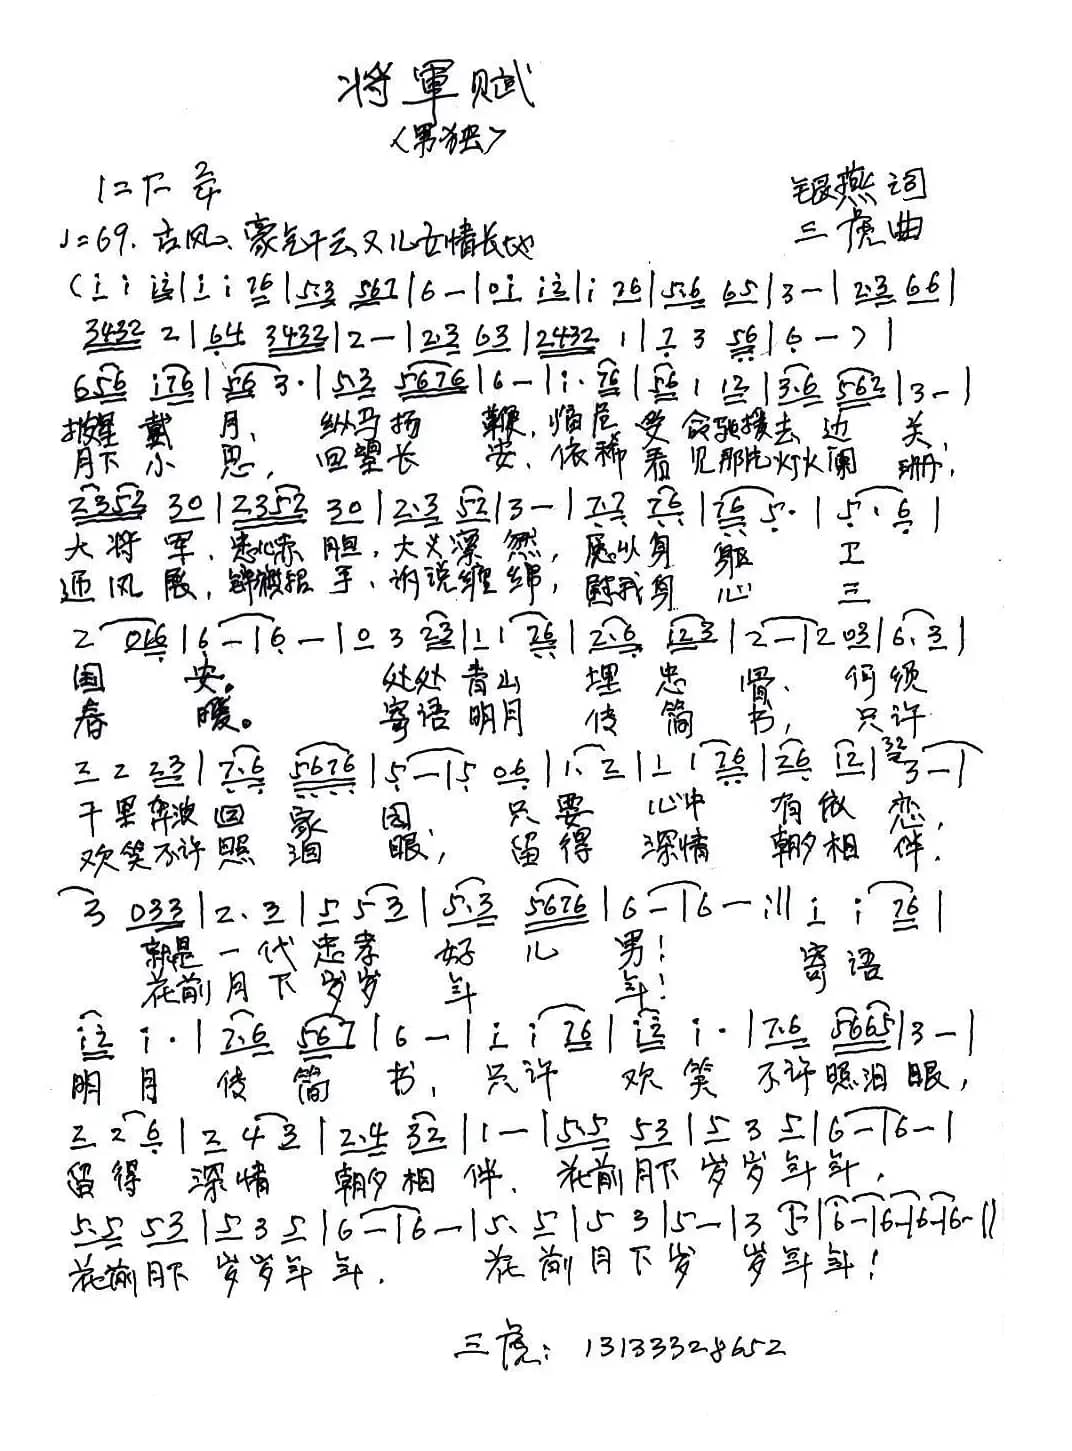 将軍赋
〈男独〉
1=F 2/4
银燕词
♩=69. 古风、豪气干云又儿女情长地
三虎曲
(i i i2|i i 76|5.3 567|6 —|0i i2|i 76|5.6 65|3 —|2.3 66|
3432 2|64 3432|2 —|2.3 63|2432 1|7 3 56|6 — )|
656 i76|56 3·|5.3 5676|6 —|i· 76|56 1 12|3.6 562|3 —|
披星戴月、纵马扬鞭，临危受命驰援去边关，
月下小思，回望长安，依稀看见那片灯火阑珊，
2352 30|2352 30|2.3 52|3 —|7.7 76|76 5·|5· 6|
大将军，忠心赤胆，大义凛然，愿以身躯卫
迎风展，锦旗招手，诉说缠绵，慰我身心三
2 016|6 —|6 —|0 3 23|1 1 26|2.6 123|2 —|2 03|6. 3|
国安。处处青山埋忠骨、何须
春暖。寄语明月传简书，只许
2 2 23|7.6 5676|5 —|5 06|1. 2|1 1 76|26 12|32 3 —|
千里奔波回家园，只要心中有依恋，
欢笑不许照泪眼，留得深情朝夕相伴.
3 033|2. 3|5 5 3|5.3 5676|6 —|6 — :|| i i 76|
就是一代忠孝好儿男！寄语
花前月下岁岁年年！
i2 i·|7.6 567|6 —|i i 76|i2 i·|7.6 5665|3 —|
明月传简书，只许欢笑不许照泪眼，
2 2 6|2 4 3|2.4 32|1 —|5.5 53|5 3 5|6 —|6 —|
留得深情朝夕相伴、花前月下岁岁年年，
5.5 53|5 3 5|6 —|6 —|5. 5|5 3|5 —|3 5|6 —|6 —|6 —|6 —||
花前月下岁岁年年. 花前月下岁岁年年！
三虎：13133328652